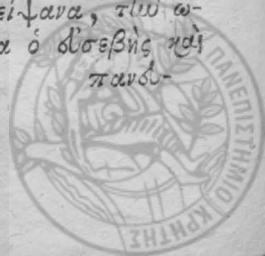 είψανα, τίω ω-
α ὁ δυσεβὴς καὶ
πανδι-
ΠΑΝΕΠΙΣΤΗΜΙΟ ΚΡΗΤΗΣ